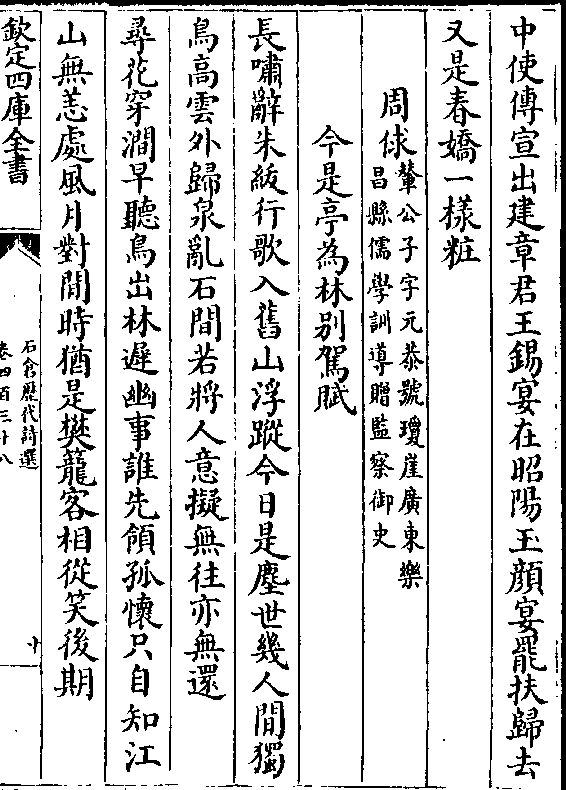 中使傳宣出建章君王錫宴在昭陽玉顔宴罷扶歸去
又是春嬌一樣粧
周俅
輦公子字元恭號瓊崖廣東樂
昌縣儒學訓導贈監察御史
今是亭為林别駕賦
長嘯辭朱紱行歌入舊山浮蹤今日是塵世幾人閒獨
鳥高雲外歸泉亂石間若將人意擬無往亦無還
尋花穿澗早聽鳥出林遲幽事誰先領孤懷只自知江
山無恙處風月對閒時猶是樊籠客相從笑後期
欽定四庫全書
石倉歷代詩選
卷四百三十八
十